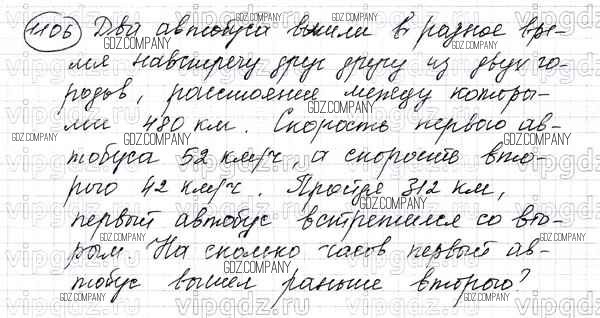 1106 Два автобуса вышли в разное вре-
мя навстречу друг другу из двух го-
родов, расстояние между которы-
ми 480 км. Скорость первого ав-
тобуса 52 км/ч, а скорость вто-
рого 42 км/ч. Пройдя 312 км,
первый автобус встретился со вто-
рым. На сколько часов первый ав-
тобус вышел раньше второго?